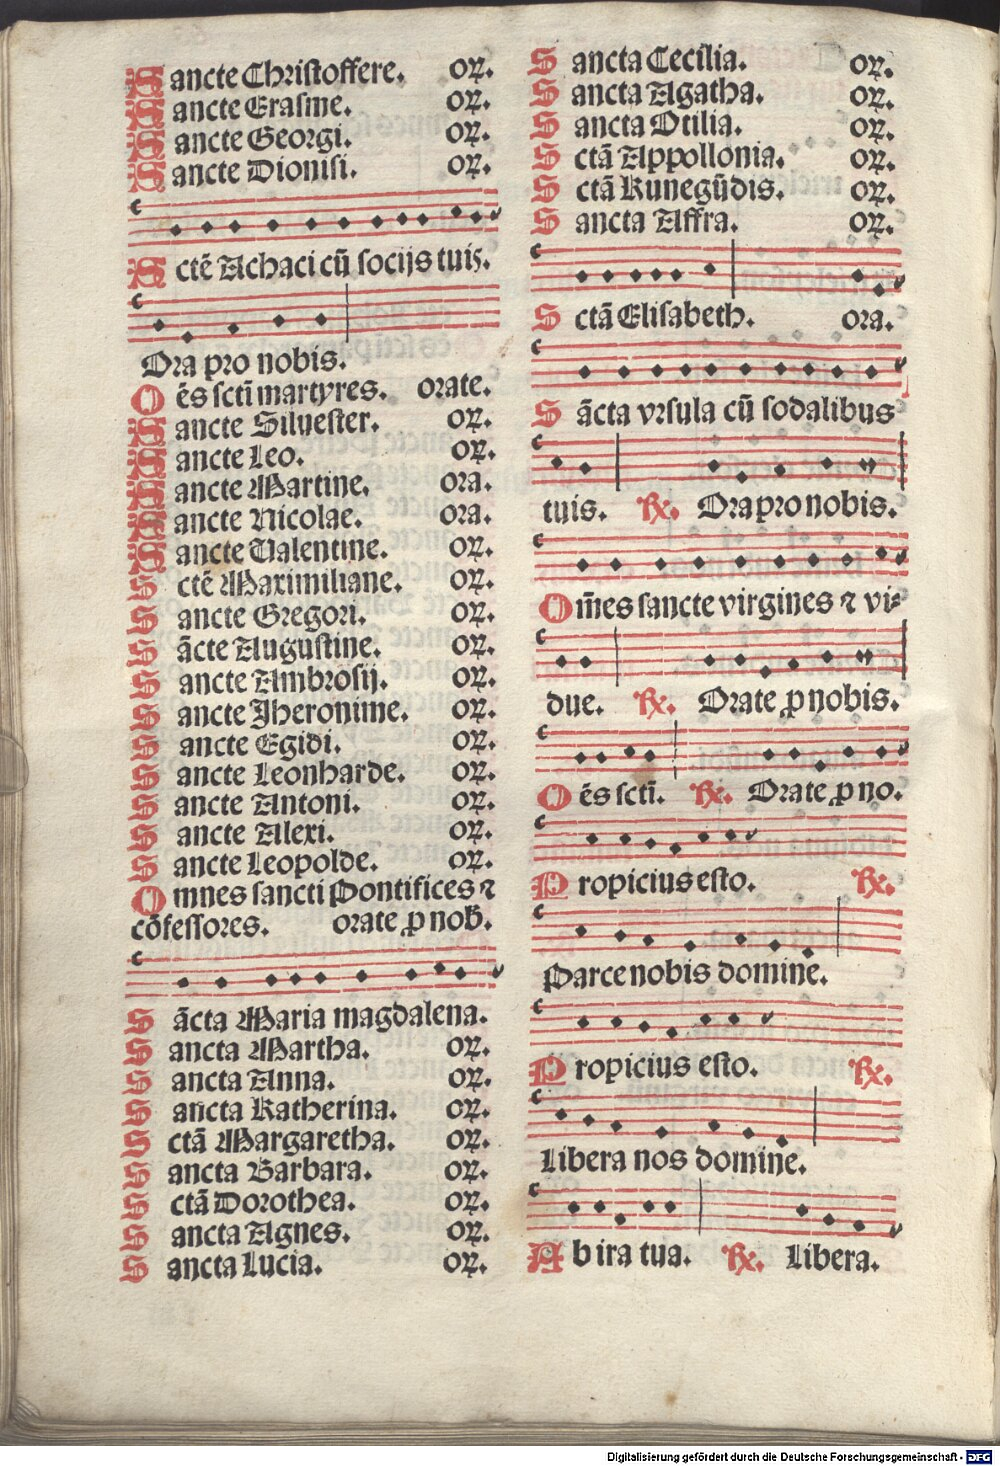 Sancte Christoffere. oꝝ.
Sancte Erasme. oꝝ.
Sancte Georgi. oꝝ.
Sancte Dionisi. oꝝ.
Sctē Achaci cū socijs tuis.
Ora pro nobis.
Oēs scti martyres. orate.
Sancte Siluester. oꝝ.
Sancte Leo. oꝝ.
Sancte Martine. ora.
Sancte Nicolae. ora.
Sancte Ualentine. oꝝ.
Sctē Maximiliane. oꝝ.
Sancte Gregori. oꝝ.
Sācte Augustine. oꝝ.
Sancte Ambrosij. oꝝ.
Sancte Jheronime. oꝝ.
Sancte Egidi. oꝝ.
Sancte Leonharde. oꝝ.
Sancte Antoni. oꝝ.
Sancte Alexi. oꝝ.
Sancte Leopolde. oꝝ.
Omnes sancti Pontifices ⁊
cōfessores. orate ꝓ nob̄.
Sācta Maria magdalena.
Sancta Martha. oꝝ.
Sancta Anna. oꝝ.
Sancta Katherina. oꝝ.
Sctā Margaretha. oꝝ.
Sancta Barbara. oꝝ.
Sctā Dorothea. oꝝ.
Sancta Agnes. oꝝ.
Sancta Lucia. oꝝ.
Sancta Cecilia. oꝝ.
Sancta Agatha. oꝝ.
Sancta Otilia. oꝝ.
Sctā Appollonia. oꝝ.
Sctā Kunegūdis. oꝝ.
Sancta Affra. oꝝ.
Sctā Elisabeth. ora.
Sācta vrsula cū sodalibus
tuis. ℟. Ora pro nobis.
Om̄es sancte virgines ⁊ vi-
due. ℟. Orate ꝓ nobis.
Oēs scti. ℟. Orate ꝓ no.
Propicius esto. ℟.
Parce nobis domine.
Propicius esto. ℟.
Libera nos domine.
Ab ira tua. ℟. Libera.
Digitalisierung gefördert durch die Deutsche Forschungsgemeinschaft - DFG